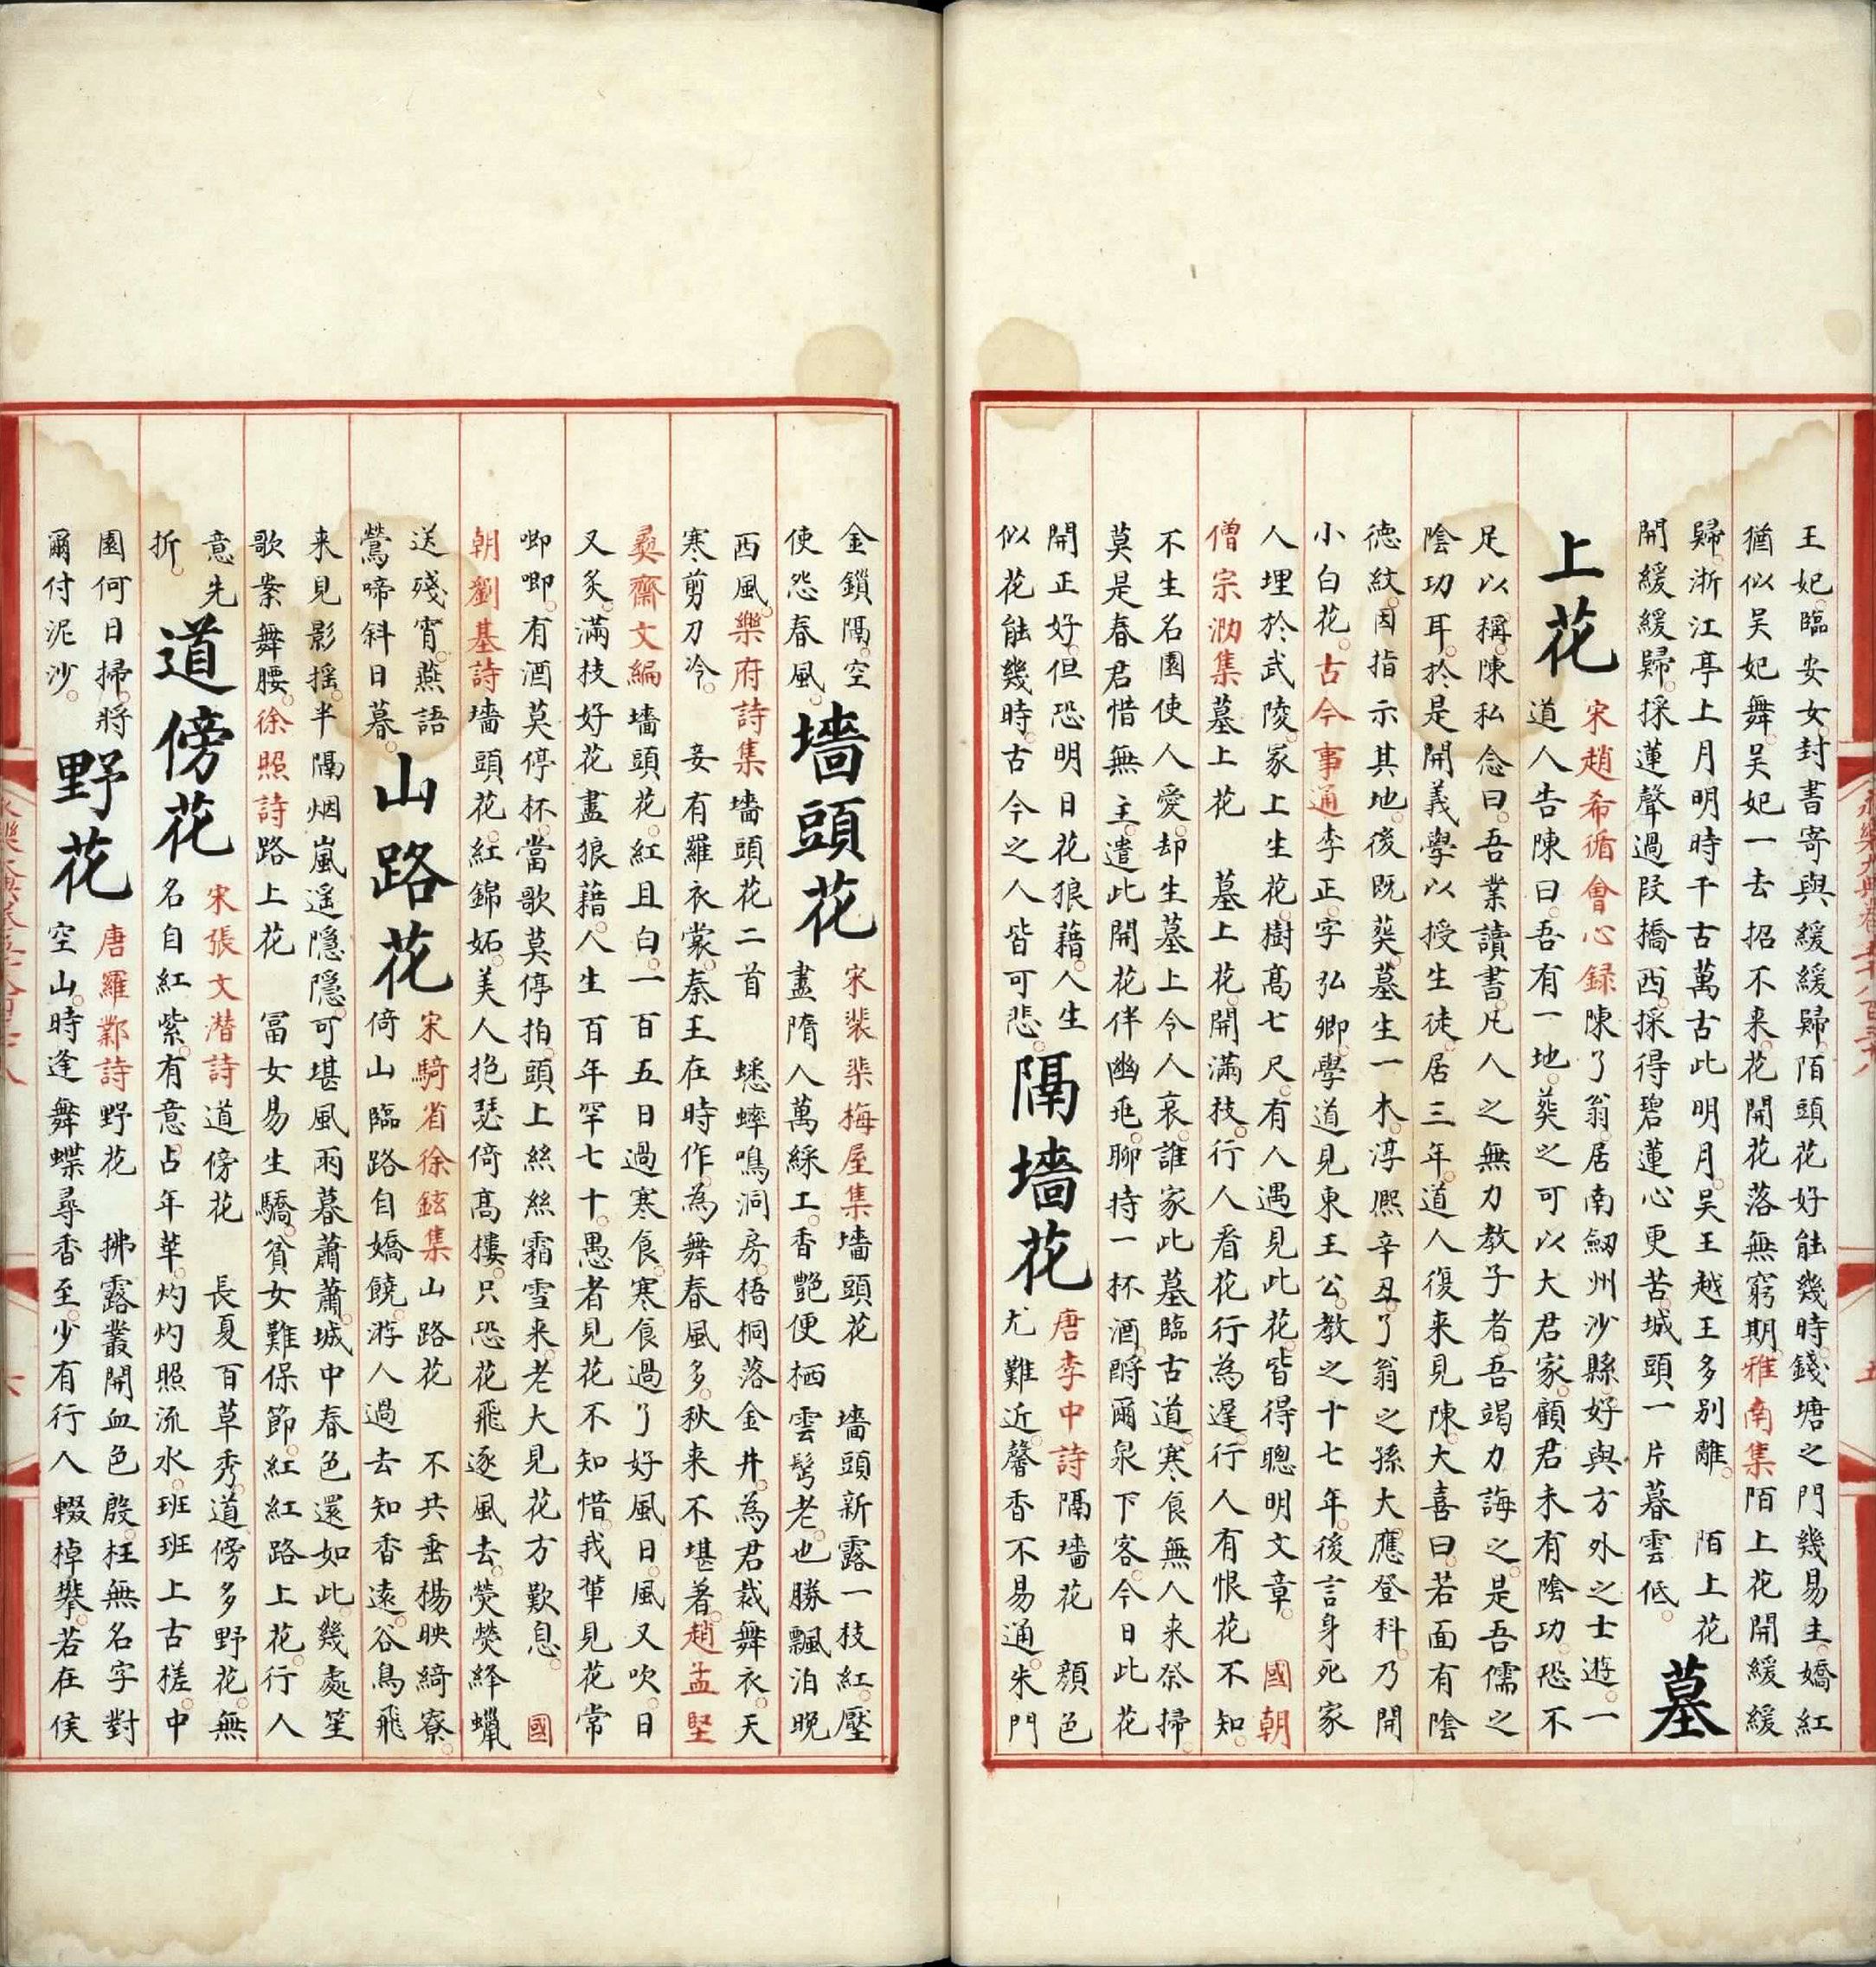 王妃臨安女封書寄與緩緩歸陌頭花好能幾時錢塘之門幾易主嬌紅
猶似吴妃舞吴妃一去招不来花開花落無窮期雅南集陌上花開緩緩
歸浙江亭上月明時千古萬古此明月吴王越王多别離 陌上花
開緩緩歸採蓮聲過段橋西採得碧蓮心更苦城頭一片暮雲低
墓
上花
宋趙希循會心録陳了翁居南劒州沙縣好與方外之士遊一
道人告陳曰吾有一地葬之可以大君家顧君未有陰功恐不
足以稱陳私念曰吾業讀書凡人之無力教子者吾竭力誨之是吾儒之
陰功耳於是開義學以授生徒居三年道人復来見陳大喜曰若面有陰
德紋因指示其地後既葬墓生一木淳熈辛丑了翁之孫大應登科乃開
小白花古今事通李正字弘卿學道見東王公教之十七年後言身死家
人埋於武陵冢上生花樹髙七尺有人遇見此花皆得聰明文章 國朝
僧宗泐集墓上花 墓上花開滿枝行人看花行為遲行人有恨花不知
不生名園使人愛却生墓上令人哀誰家此墓臨古道寒食無人来祭掃
莫是春君惜無主遣此開花伴幽兆聊持一杯酒酹爾泉下客今日此花
開正好但恐明日花狼藉人生
似花能幾時古今之人皆可悲
隔墻花
唐李中詩隔墻花 顔色
尤難近馨香不易通朱門
金鎖隔空
使怨春風
墻頭花
宋裴棐梅屋集墻頭花 墻頭新露一枝紅壓
盡隋人萬綵工香艷便栖雲髩老也勝飄泊晚
西風樂府詩集墻頭花二首 蟋蟀鳴洞房梧桐落金井為君裁舞衣天
寒剪刀冷 妾有羅衣裳秦王在時作為舞春風多秋来不堪着趙孟堅
彛齋文編墻頭花紅且白一百五日過寒食寒食過了好風日風又吹日
又炙滿枝好花盡狼藉人生百年罕七十愚者見花不知惜我軰見花常
唧唧有酒莫停杯當歌莫停拍頭上絲絲霜雪来老大見花方歎息 國
朝劉基詩墻頭花紅錦妬美人抱瑟倚髙樓只恐花飛逐風去熒熒絳蠟
送殘宵燕語
鶯啼斜日暮
山路花
宋騎省徐鉉集山路花 不共垂楊映綺寮
倚山臨路自嬌饒游人過去知香遠谷鳥飛
来見影摇半隔烟嵐遥隱隱可堪風雨暮蕭蕭城中春色還如此幾處笙
歌案舞腰徐照詩路上花 冨女易生驕貧女難保節紅紅路上花行人
意先
折
道傍花
宋張文潜詩道傍花 長夏百草秀道傍多野花無
名自紅紫有意占年華灼灼照流水班班上古槎中
園何日掃將
爾付泥沙
野花
唐羅鄴詩野花 拂露叢開血色殷枉無名字對
空山時逢舞蝶尋香至少有行人輟棹攀若在侯